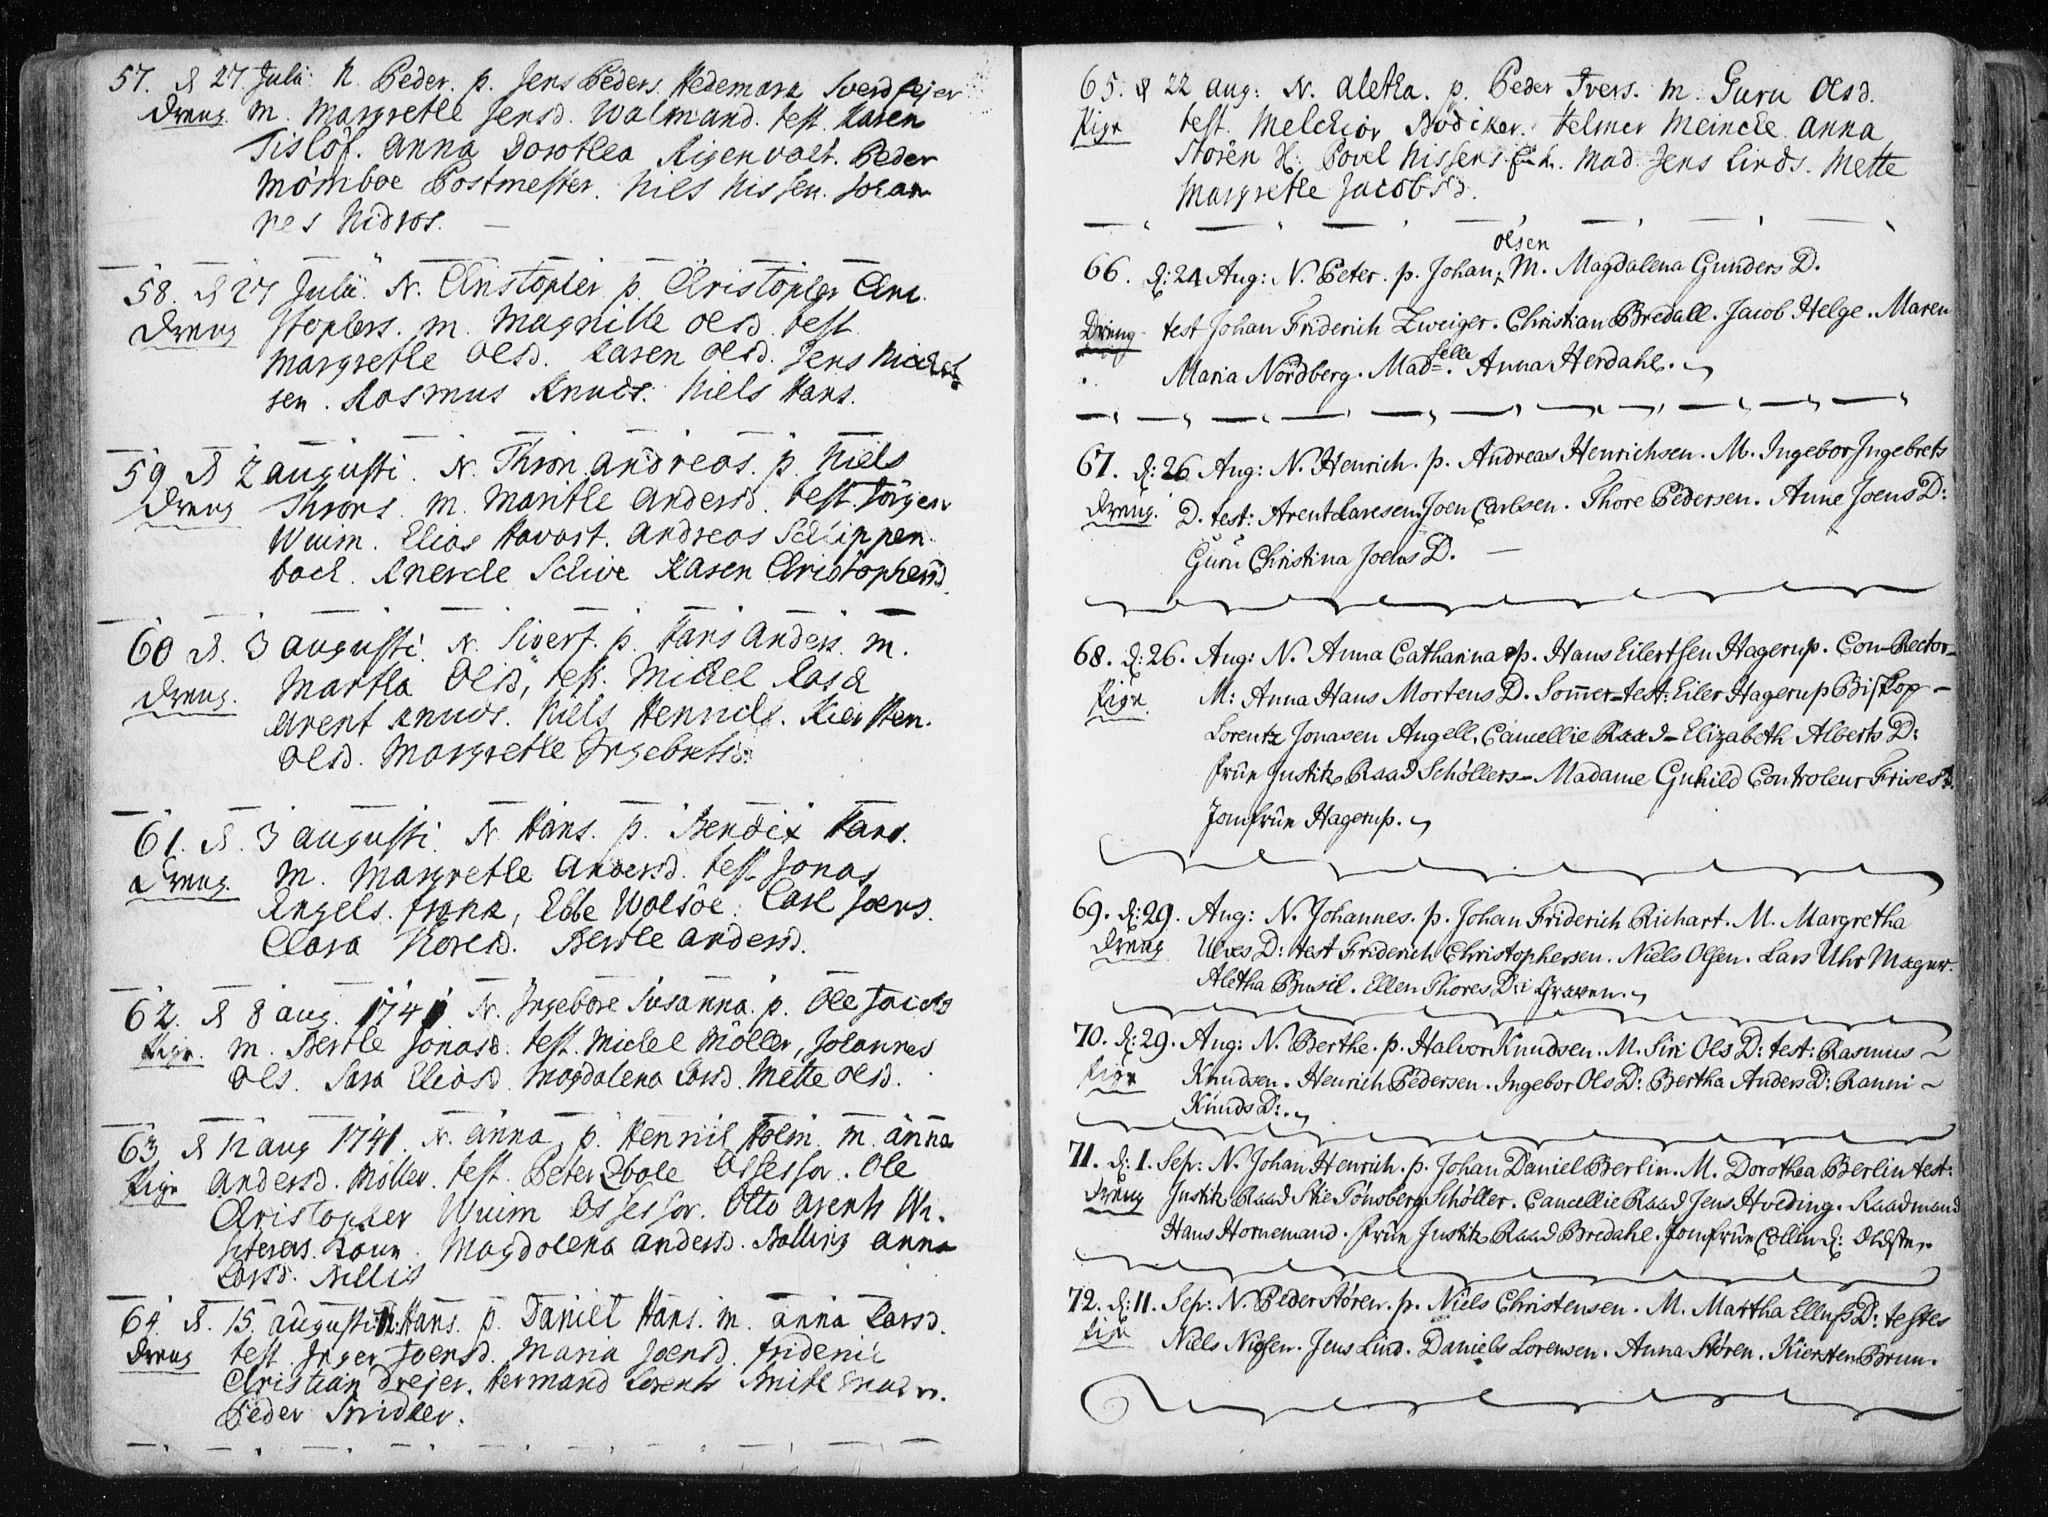 57. d 27 Julii N. Peder. p. Jens Peders. Hedemark Sverdfejer
Dreng. m. Margrethe Jensd. Walmand. test. Karen
Tislöf. Anna Dorothea Rigenvolt. Peder
Mömboe Postmester. Niels Nissen. Johan
nes Nidros.
58. d 27 Julii. N. Christopher p. Christopher Chri
Dreng stophers. m. Magnille Olsd. test.
Margrethe Olsd. Karen Olsd. Jens Michel
sen. Rasmus Knuds. Niels Hans.
59 d 2 augusti. N. Thron andreas. p. Niels
Dreng Throns. m. Marithe Andersd. test. Jörgen
Wuim. Elias Havart. Andreas Schippen
bach. Schive Karen Christophersd.
60 d. 3 augusti. N. Sivert. p. Hans Anders. m.
Dreng. Martha Olsd, test. Michel Rask
Arent Knuds. Niels Henrichs. Kiersten.
Olsd. Margrethe Ingebretsd.
61. d. 3 augusti. N. Hans. p. Bendix Hans.
Dreng. m. Margrethe Andersd. test Jonas
Angels. Ebbe Wolsöe. Carl Joens.
Clara Thoresd. Berthe Andersd.
62. d 8 aug. 1741 N. Ingebore Susanna. p. Ole Jacobs
Pige. m. Berthe Jonasd. test. Michel Möller, Johannes
Ols. Sara Eliasd. Magdalena Larsd. Mette Olsd.
63 d 12 aug 1741. N. anna, p. Hennich Holm. m. anna
Pige Andersd. Möller. test. Peter Assessor. Ole
Christopher Wuim Assessor. Otto Arents
Magdalena Andersd. Balling Anna
Larsd. Nillis
64. d. 15 augusti N. Hans. p. Daniel Hans. m. anna Larsd.
Dreng test. Inger Joensd. Maria Joensd. Friderich
Christian Drejer. Hermand Lorents Smith
Peder Snidker.
65. d 22 aug: N. aletha. p. Peder Ivers. m. Guru Olsd.
Pige test. Melchior Bödiker. Helmer Meincke. Anna
Stören H. Povel Nissens Enk. Mad. Jens Linds. Mette
Margrethe Jacobsd.
olsen
66. d: 24 Aug: N. Peter. p. Johan, M. Magdalena Gunders D.
Dreng test Johan Friderich Zweiger. Christian Bredall. Jacob Helge. Maren
Maria Nordberg. Mad selle. Anna Herdahl.
67. d: 26 Aug: N. Henrich. p. Andreas Henrichsen. M. Ingebor Ingebrets
Dreng. D. test: Arent Laresen. Joen Carlsen. Thore Pedersen. Anne Joens D:
Guru Christina Joens D.
68. d: 26. Aug: N. Anna Catharina p. Hans Eilertsen Hagerup. Con-Rector
Pige. M: Anna Hans Mortens D. Sommer test: Eiler Hagerup Biskop
Lorentz Jonasen Angell. Cancellie Raad Elizabeth Alberts D:
frue Justitz Raad Schöllers Madame Gunild Controleur Frises
Jomfrue Hagerup.
69. d: 29. Aug: N. Johannes. p. Johan Friderich Richart. M. Margretha
Dreng Ulves D: test Friderich Christophersen. Niels Olsen. Lars Uhr Mager.
Aletha Busch. Ellen Thores D: i Graven.
70. d: 29. Aug: N. Berthe. p. Halvor Knudsen. M. Siri Ols D: test: Rasmus
Pige Knudsen. Henrich Pedersen. Ingebor Ols D: Bertha Anders D: Ranni
Knuds D:.
71. d: 1. Sep: N. Johan Henrich. p. Johan Daniel Berlin. M. Dorothea Berlin test:
Dreng Justitz Raad Stie Tönsberg Schöller. Cancellie Raad Jens Hveding. Raadmand
Hans Hornemand. frue Justitz Raad Bredahl. Jomfrue Collin d: Oldste.
72. d: 11. Sep: N. Peder Stören. p. Niels Christensen. M. Martha Ellefs D: testes
Pige Niels Nissen. Jens Lind. Daniels Lorensen. Anna Stören. Kiersten Brun.